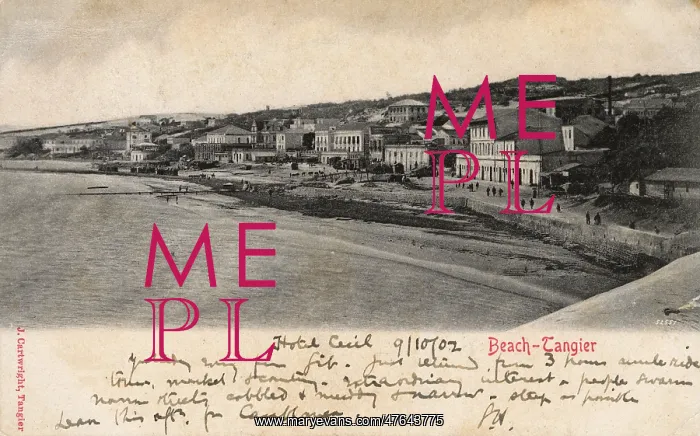 ME
PL
ME
PL
J. Cartwright, Tangier
Beach-Tangier
Hotel Cecil 9/10/02
from Gib. Just returned from 3 hours mule ride
town, market & country. extraordinary interest - people swarm
narrow streets cobbled & muddy & narrow - steep as possible
Leave this aft. for Casablanca
www.maryevans.com/47643775